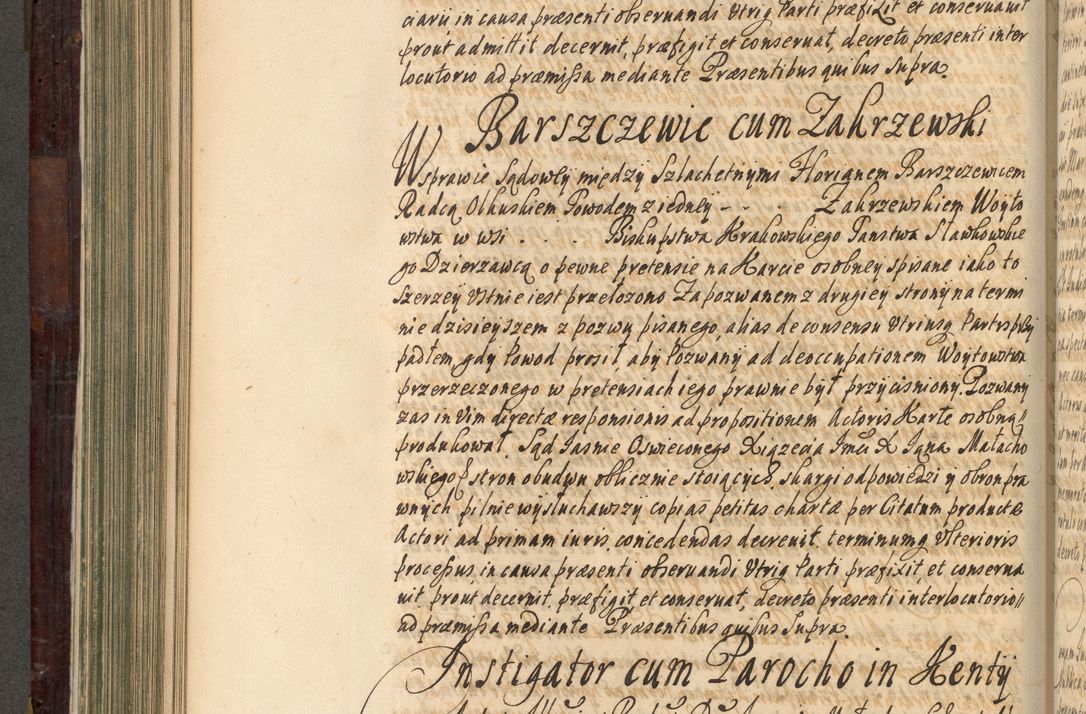 ciarii in causa præsenti obseruandi Utriq Parti præfixit et conseruauit
prout admittit decernit, præfigit et conseruat, decreto præsenti inter
locutorio ad præmissa mediante Præsentibus quibus Supra.
Barszczewic cum Zakrzewski
W sprawie Sądowey między Szlachetnymi Floryanem Barszczewicem
Radcą Olkuskiem Powodem z iedney - - - . Zakrzewskiem Woyto
wstwa w wsi . . . . Biskupstwa Krakowskiego Panstwa Sławkowskie
go Dzierzawcą o pewne pretensie na Karcie osobney spisane iako to
Szerzey Ustnie iest przełozono Zapozwanem z drugiey strony na termi
nie dzisieyszem z pozwu pisanego, alias de consensu Utriusq Partis przy
padłem, gdy Powod prosił, aby Pozwany ad deoccupationem Woytowstwa
przerzeczonego w pretensiach iego prawnie był przycisniony. Pozwany
zas in Vim directæ responsionis ad propositionem Actoris Karte osobną
produkował. Sąd Jasnie Oswieconego Xiązecia Jmci X Jana Małacho
wskiego stron obudwu oblicznie stoiących, skargi odpowiedzi y obron pra
wnych pilnie wysłuchawszy copias petitas chartæ per Citatum productæ
Actori ad primam iuris concedendas decreuit. terminumq Ulterioris
processus in causa præsenti obseruandi Utriq Parti præfixit, et conserua
uit, prout decernit, præfigit, et conseruat, decreto præsenti interlocutorio
ad præmissa mediante Præsentibus quibus Supra.
Instigator cum Parocho in Kenty